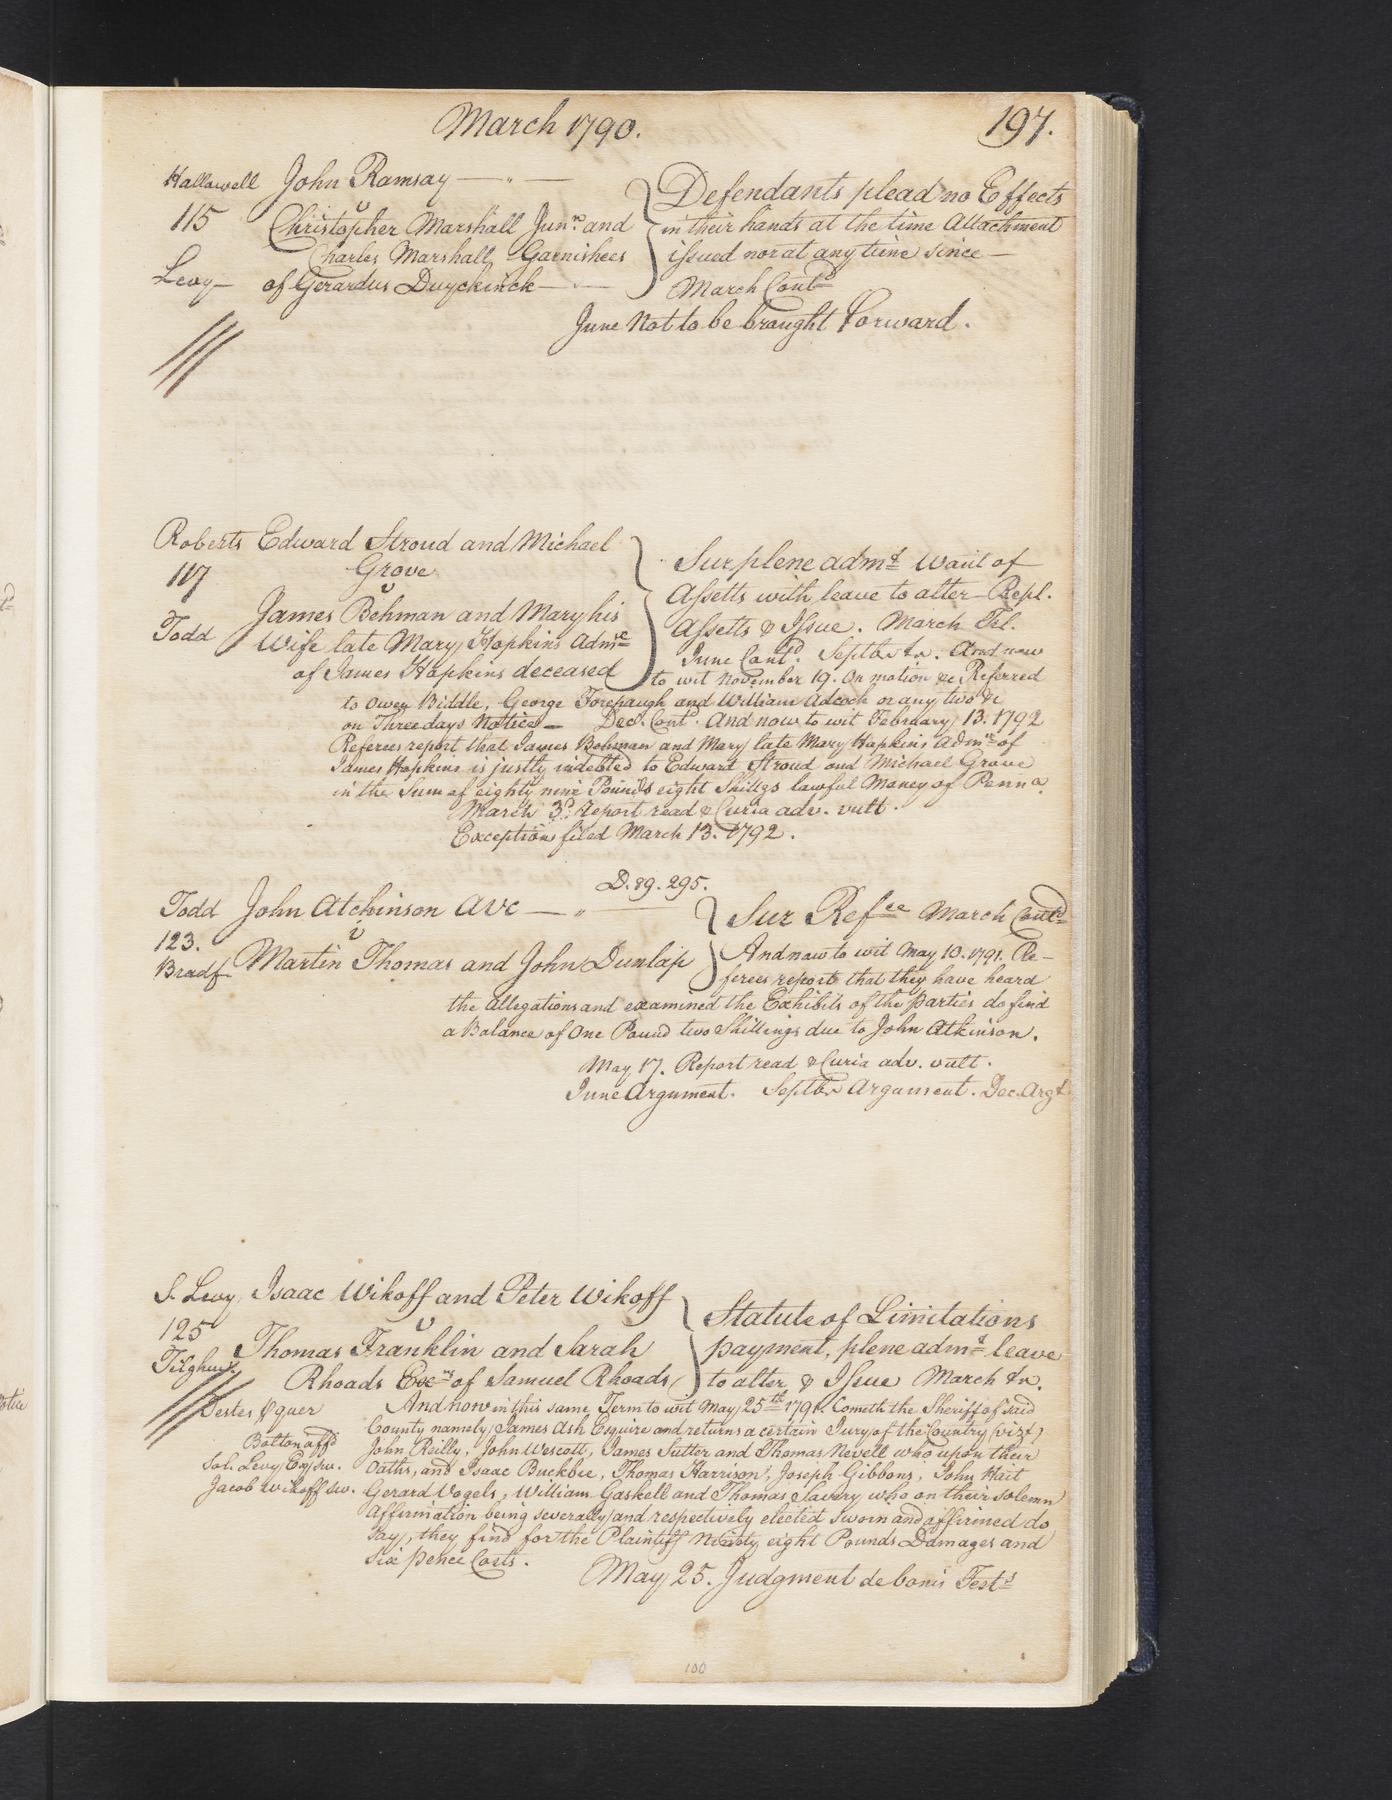 March 1790.
197.
Hallowell John Ramsay
v
115 Christopher Marshall Junr. and
Charles Marshall Garnishees
Levy of Gerardus Duyckinck
Defendants plead no Effects
in their hands at the time Attachment
issued nor at any time since
March Contd
June Not to be brought forward.
Roberts Edward Stroud and Michael
117 Grove
v
James Behman and Mary his
Todd Wife late Mary Hopkins Admx
of James Hopkins deceased
Sur plene admt want of
Assetts with leave to alter Repl.
Assetts & Issue. March Tel.
June Contd. Septbr &c. And now
to wit November 19. On motion &c Referred
to Owen Biddle, George Forepaugh and William Adcock or any two &c
on Three days Notice Dec. Contd. And now to wit February 13. 1792
Referees report that James Bohman and Mary late Mary Hopkins Admx of
James Hopkins is justly indebted to Edward Stroud and Michael Grove
in the Sum of eighty nine Pounds eight Shillgs lawful Money of Penna.
March 3d. report read & Curia adv. vult.
Exception filed March 13. 1792.
D. 89. 295.
Todd John Atchinson
123. v
Bradf Martin Thomas and John Dunlap
Sur Refce March Contd
And now to wit May 10. 1791. Re-
ferees report that they have heard
the Allegations and examined the Exhibits of the parties do find
a Balance of One Pound two Shillings due to John Atkinson.
May 17. Report read & Curia adv. vult.
June Argument. Septbr Argument. Dec. Argt
S. Levy Isaac Wikoff and Peter Wikoff
125 v
Thomas Franklin and Sarah
Tilghm. Rhoads Exrs of Samuel Rhoads
Statute of Limitations
payment, plene admt leave
to alter & Issue March &c.
Testes p quer
Bolton affd
Sol. Levy Esq sw.
Jacob Wikoff sw.
And now in this same Term to wit May 25th 1791. Cometh the Sheriff of said
County namely James Ash Esquire and returns a certain Jury of the Country (vizt)
John Reilly, John Wescott, James Sutter and Thomas Nevell who upon their
Oaths, and Isaac Buckbee, Thomas Harrison, Joseph Gibbons, John Hart
Gerard Vogels, William Gaskell and Thomas Savery who on their solemn
Affirmation being severally and respectively elected sworn and affirmed do
say, they find for the Plaintiff Ninety eight Pounds Damages and
Six pence Costs.
May 25. Judgment de bonis Testt
100